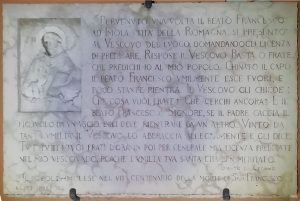 PERVENUTO UNA VOLTA IL BEATO FRANCESCO
AD IMOLA CITTÀ DELLA ROMAGNA SI PRESENTÒ
AL VESCOVO DEL LUOGO DOMANDANDOGLI LICENZA
DI PREDICARE. RISPOSE IL VESCOVO: BASTA O FRATE
CHE PREDICHI IO AL MIO POPOLO. CHINATO IL CAPO
IL BEATO FRANCESCO UMILMENTE ESCE FUORI, E
POCO STANTE RIENTRA. IL VESCOVO GLI CHIEDE:
CHE COSA VUOI FRATE? CHE CERCHI ANCORA? E IL
BEATO FRANCESCO: SIGNORE, SE IL PADRE CACCIA IL
FIGLIUOLO DA UN USCIO, EGLI DEVE RIENTRARE DA UN ALTRO. VINTO DA
TANTA UMILTÀ IL VESCOVO LO ABBRACCIA E GLI DICE:
TU E TUTTI I TUOI FRATI D'ORA IN POI PER GENERALE MIA LICENZA PREDICATE
NEL MIO VESCOVADO, PERCHÈ L'UMILTÀ TUA SANTA CIÒ HA BEN MERITATO.
CELANO
IMOLESE NEL VII CENTENARIO DELLA MORTE DI SAN FRANCESCO